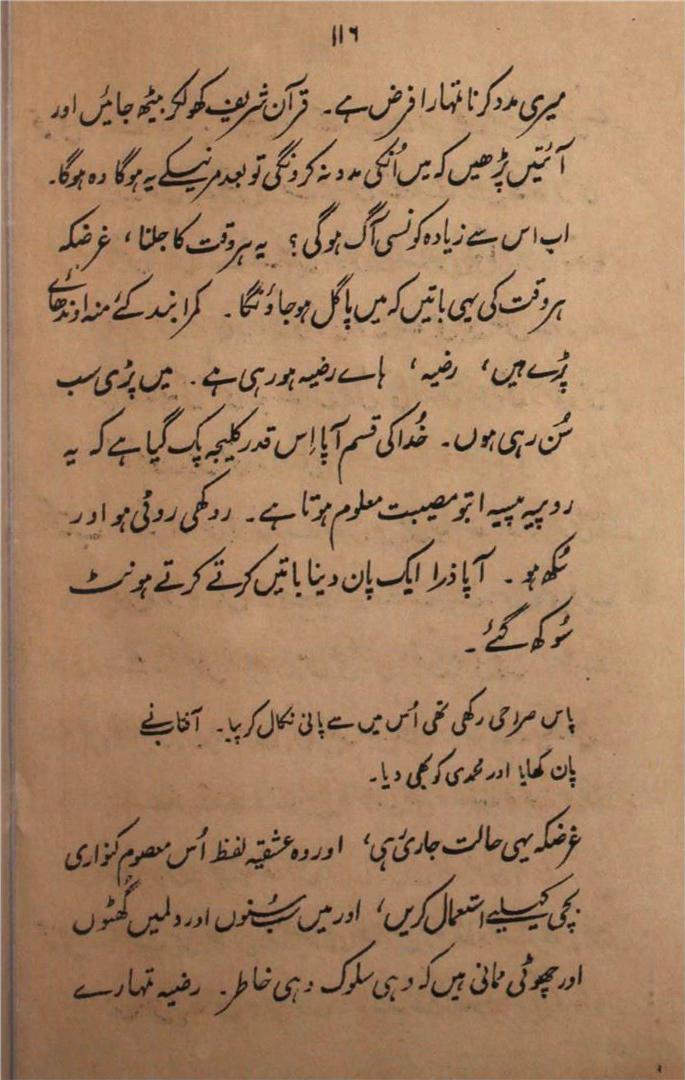 ۱۱۶
میری مدد کرنا تمہارا فرض ہے۔ قرآن شریف کھولکر بیٹھ جائیں اور
آئتیں پڑھیں کہ میں اُنکی مدد نہ کرونگی تو بعد مرنیکے یہ ہوگا وہ ہوگا۔
اب اس سے زیادہ کونسی آگ ہوگی؟ یہ ہر وقت کا جلنا، غرضکہ
ہر وقت کی یہی باتیں کہ میں پاگل ہو جاؤنگا۔ کمرا بند کئے منہ اوندھائے
پڑے ہیں، رضیہ، ہائے رضیہ ہو رہی ہے۔ میں پڑی سب
سُن رہی ہوں۔ خُدا کی قسم آپا اِس قدر کلیجہ پک گیا ہے کہ یہ
روپیہ پیسیہ ابتو مصیبت معلوم ہوتا ہے۔ روکھی روٹی ہو اور
سُکھ ہو۔ آپا ذرا ایک پان دینا باتیں کرتے کرتے ہونٹ
سُوکھ گئے۔
پاس صراحی رکھی تھی اُس میں سے پانی نکال کر پیا۔ آفتاب نے
پان کھایا اور محمدی کو بھی دیا۔
غرضکہ یہی حالت جاری رہی، اور وہ عشقیہ لفظ اُس معصوم کنواری
بچی کیلئے استعمال کریں، اور میں سب سُنوں اور دلمیں گُھٹوں
اور چھوٹی ممانی ہیں کہ وہی سلوک وہی خاطر۔ رضیہ تمہارے